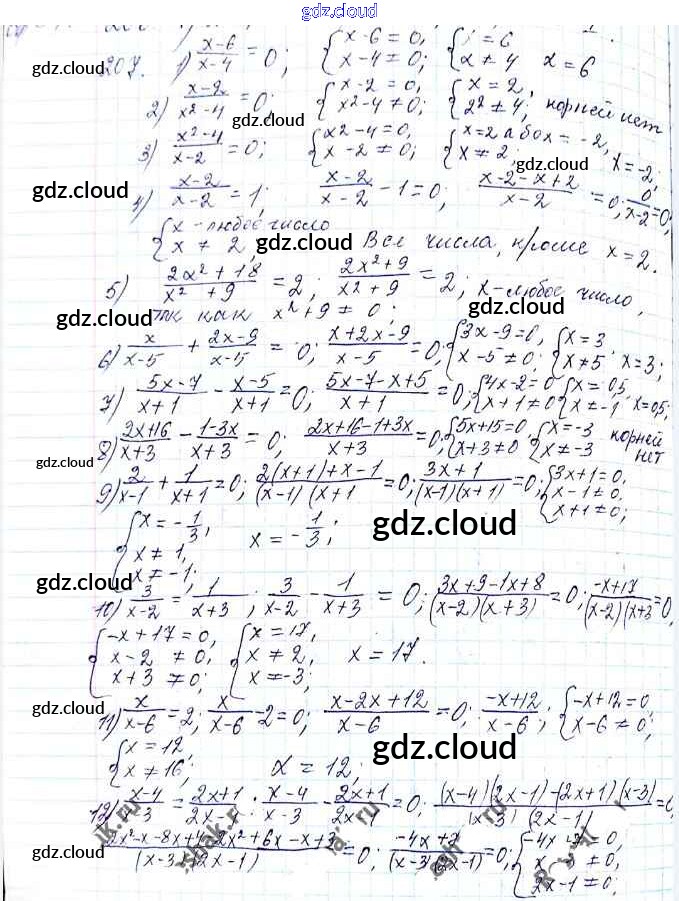 gdz.cloud
207. 1) (x-6)/(x-4) = 0; {x-6 = 0, x-4 ≠ 0; {x = 6 x ≠ 4 x = 6
gdz.cloud
2) (x-2)/(x²-4) = 0; {x-2 = 0, x²-4 ≠ 0; {x = 2, 2² ≠ 4; корней нет
gdz.cloud
3) (x²-4)/(x-2) = 0; {x²-4 = 0, x-2 ≠ 0; {x=2 або x = -2, x ≠ 2; x = -2;
gdz.cloud gdz.cloud
4) (x-2)/(x-2) = 1; (x-2)/(x-2) - 1 = 0; (x-2-x+2)/(x-2) = 0; 0/(x-2) = 0;
{x - любое число x ≠ 2, Все числа, кроме x = 2.
gdz.cloud gdz.cloud
5) (2x²+18)/(x²+9) = 2; (2x²+9)/(x²+9) = 2; x - любое число,
тк как x²+9 ≠ 0;
gdz.cloud gdz.cloud
6) x/(x-5) + (2x-9)/(x-5) = 0; (x+2x-9)/(x-5) = 0; {3x-9=0, x-5≠0; {x=3 x≠5. x=3;
7) (5x-7)/(x+1) - (x-5)/(x+1) = 0; (5x-7-x+5)/(x+1) = 0; {4x-2=0 x+1≠0 {x=0,5 x≠-1. x=0,5;
8) (2x+16)/(x+3) - (1-3x)/(x+3) = 0; (2x+16-1+3x)/(x+3) = 0; {5x+15=0, x+3≠0 {x=-3 x≠-3 корней нет
gdz.cloud
9) 2/(x-1) + 1/(x+1) = 0; (2(x+1)+x-1)/((x-1)(x+1) = 0; (3x+1)/((x-1)(x+1)) = 0; {3x+1=0, x-1≠0, x+1≠0;
{x = -1/3, x ≠ 1, x ≠ -1; x = -1/3;
gdz.cloud
gdz.cloud gdz.cloud
10) 3/(x-2) = 1/(x+3); 3/(x-2) - 1/(x+3) = 0; (3x+9-1x+8)/((x-2)(x+3)) = 0; (-x+17)/((x-2)(x+3 = 0,
{-x+17 = 0, x-2 ≠ 0, x+3 ≠ 0; {x = 17, x ≠ 2, x ≠ -3; x = 17.
gdz.cloud
gdz.cloud
11) x/(x-6) = 2; x/(x-6) - 2 = 0; (x-2x+12)/(x-6) = 0; (-x+12)/(x-6); {-x+12=0 x-6≠0;
{x = 12 x ≠ 16; x = 12;
gdz.cloud
gdz.cloud
12) (x-4)/(x-3) = (2x+1)/(2x-1); (x-4)/(x-3) - (2x+1)/(2x-1) = 0; ((x-4)(2x-1)-(2x+1)(x-3))/((x-3)(2x-1)
(2x²-x-8x+4-2x²+6x-x+3)/((x-3)(2x-1) = 0; (-4x+7)/((x-3)(2x-1) = 0; {-4x+7=0, x-3≠0, 2x-1≠0;
gdz.cloud
gdz.cloud